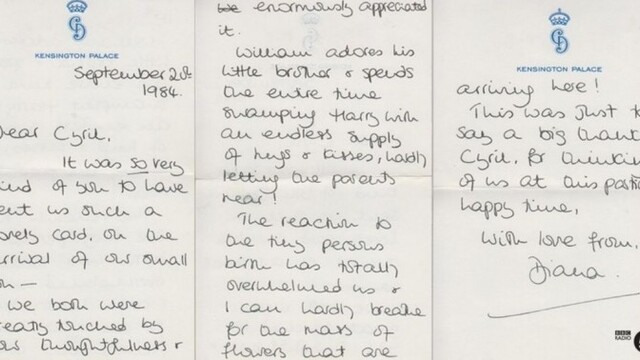 KENSINGTON PALACE
September 20th
1984.
Dear Cyril,
It was so very
kind of you to have
sent us such a
lovely card, on the
arrival of our small
son —
We both were
greatly touched by
your thoughtfulness &
we enormously appreciated
it.
William adores his
little brother & spends
the entire time
swamping Harry with
an endless supply
of hugs & kisses, hardly
letting the parents
near!
The reaction to
the tiny persons
birth has totally
overwhelmed us &
I can hardly breathe
for the mass of
flowers that are
KENSINGTON PALACE
arriving here!
This was just to
say a big thank
Cyril, for thinking
of us at this particularly
happy time,
With love from,
Diana.
BBC
RADIO